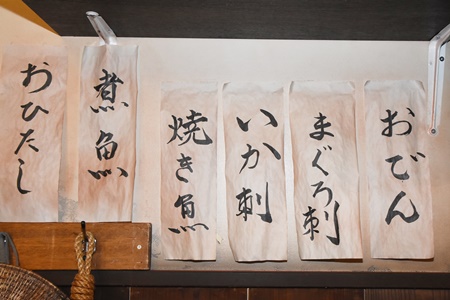 おでん
まぐろ刺
いか刺
焼き魚
煮魚
おひたし